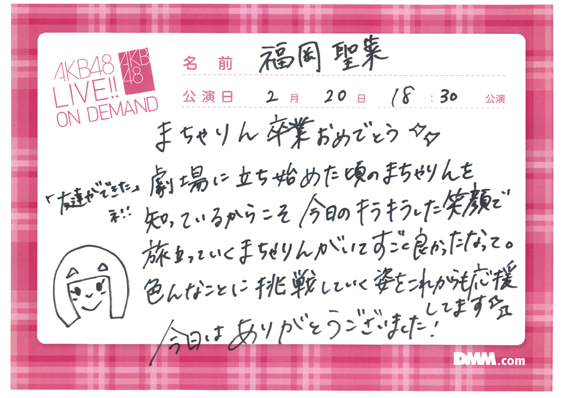 AKB48
LIVE!!
ON DEMAND
AKB
48
名前 福岡 聖菜
公演日 2月 20日 18:30 公演
まちゃりん卒業おめでとう☆☆
「友達ができた」
ネ!!
劇場に立ち始めた頃のまちゃりんを
知っているからこそ今日のキラキラした笑顔で
旅立っていくまちゃりんがいてすごく良かったなって。
色んなことに挑戦していく姿をこれからも応援
してます☆
今日はありがとうございました!
DMM.com